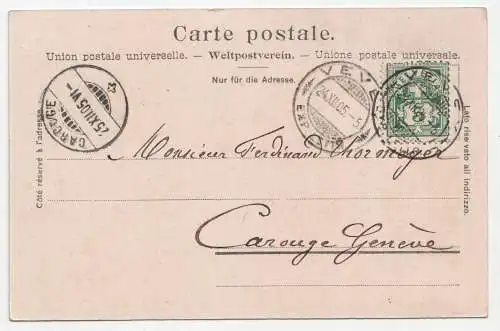 Carte postale.
Union postale universelle. — Weltpostverein. — Unione postale universale.
Nur für die Adresse.
Côté réservé à l'adresse.
Lato riservato all indirizzo.
CAROUGE
25.XII.05.VI
VEVEY
24.XII.05.-5
EXP. LETT.
5
Monsieur Ferdinand Thormeyer
Carouge Genève